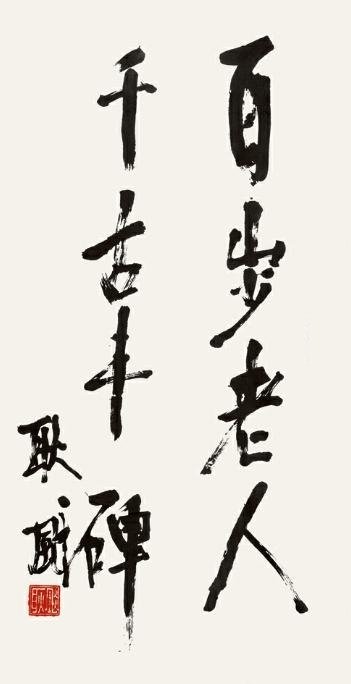 百岁老人
千古丰碑
耿飚